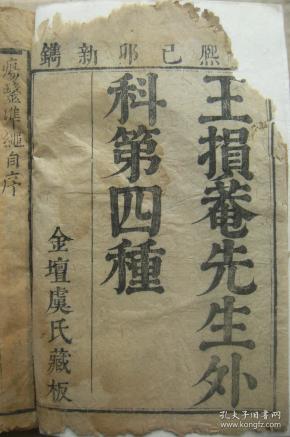 熙己卯新鐫
王損菴先生外
科第四種
金壇虞氏藏板
瘍醫準繩自序
孔夫子旧书网
www.kongfz.com